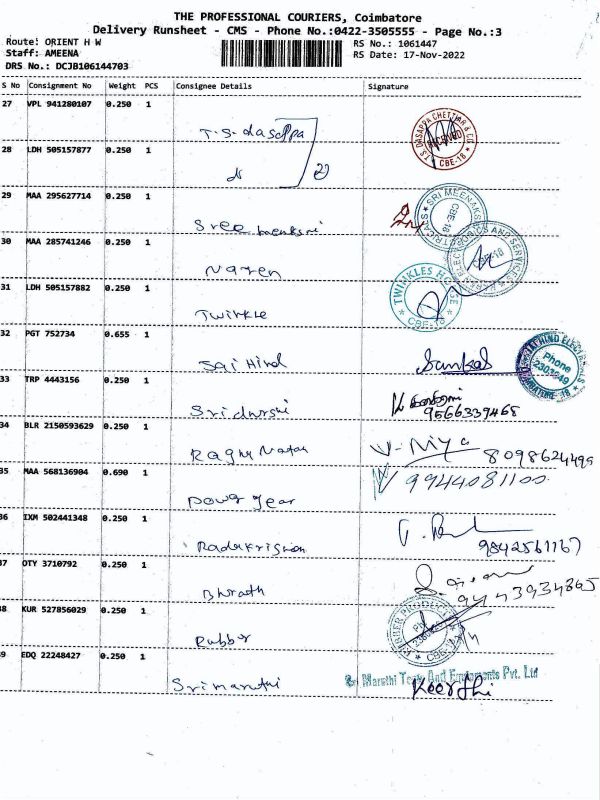 THE PROFESSIONAL COURIERS, Coimbatore
Delivery Runsheet - CMS - Phone No.:0422-3505555 - Page No.:3
Route: ORIENT H W
RS No.: 1061447
Staff: AMEENA
RS Date: 17-Nov-2022
DRS No.: DCJB106144703
S No Consignment No Weight PCS Consignee Details Signature
27 VPL 941280107 0.250 1
T.S. dasappa
T.S. DASAPPA CHETTIAR & CO. RECEIVED CBE-18
28 LDH 505157877 0.250 1
29 MAA 295627714 0.250 1
Sree
SRI CBE-18
30 MAA 285741246 0.250 1
Naren
AND
31 LDH 505157882 0.250 1
Twinkle
TWINKLES CBE-18
32 PGT 752734 0.655 1
Sai Hind
Phone
33 TRP 4443156 0.250 1
9566339468
34 BLR 2150593629 0.250 1
V. Niya 8098624499
35 MAA 568136904 0.690 1
Power Gear
9944081100
36 IXM 502441348 0.250 1
Radakrisnan
9842561167
37 OTY 3710792 0.250 1
Bharath
9443934365
38 KUR 527856029 0.250 1
Rubber
39 EDQ 22248427 0.250 1
Sri Maruthi Tools And Equipments Pvt. Ltd
Keerthi